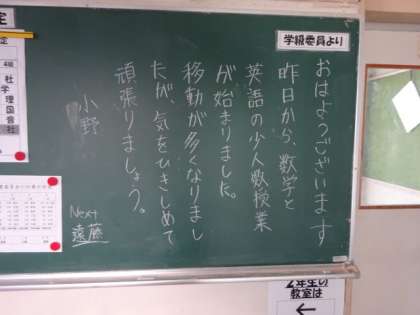 学級委員より
おはようございます
昨日から、数学と
英語の少人数授業
が始まりました。
移動が多くなりまし
たが、気をひきしめて
頑張りましょう。
小野
Next
遠藤
定
定
4級
社
学理国会社
2年生の
教室は
←